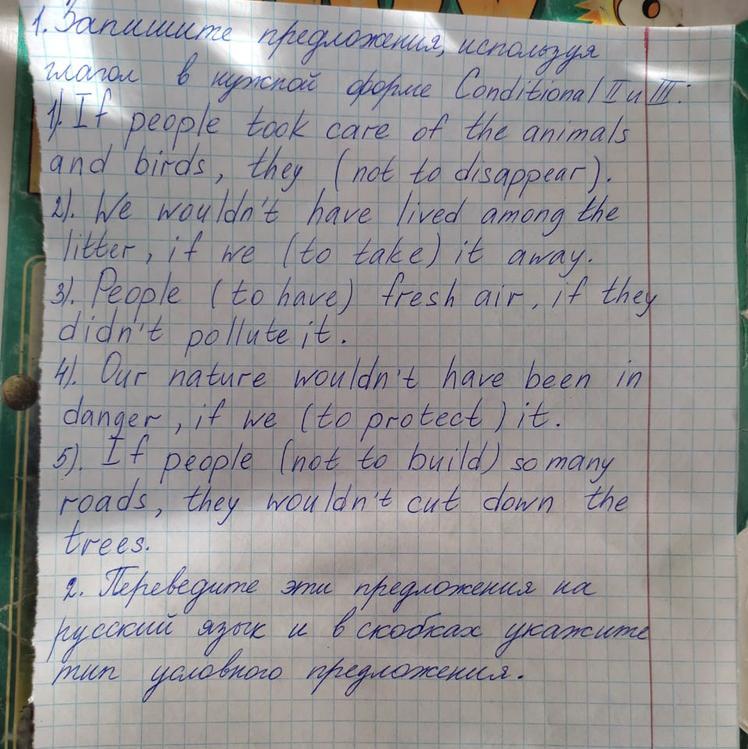 1. Запишите предложения, используя
глагол в нужной форме Conditional II и III:
1). If people took care of the animals
and birds, they (not to disappear).
2). We wouldn't have lived among the
litter, if we (to take) it away.
3). People (to have) fresh air, if they
didn't pollute it.
4). Our nature wouldn't have been in
danger, if we (to protect) it.
5). If people (not to build) so many
roads, they wouldn't cut down the
trees.
2. Переведите эти предложения на
русский язык и в скобках укажите
тип условного предложения.